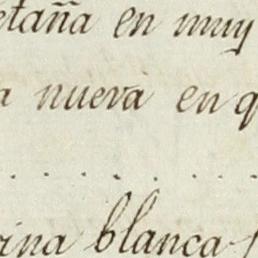 etaña en muy
a nueva en q
. . . . . . .
rina blanca